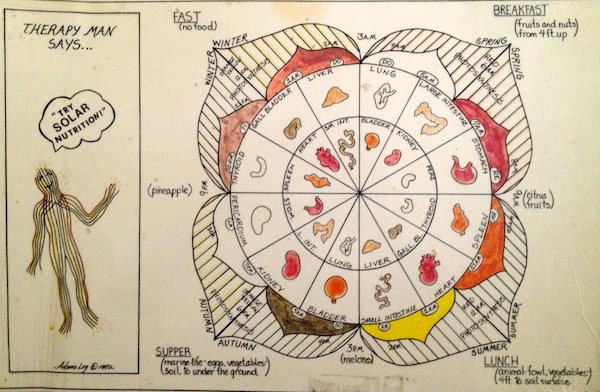 THERAPY MAN
SAYS...
"TRY
SOLAR
NUTRITION!"
Adano Ley © 1982
FAST
(no food)
BREAKFAST
(fruits and nuts)
from 4ft. up
3A.M.
WINTER
WINTER
SPRING
SPRING
PHOTOSYNTHESIS
PHOTOSYNTHESIS
(pineapple)
9PM
9AM
(citrus
fruits)
LIVER
LUNG
LARGE INTESTINE
STOMACH
SPLEEN
HEART
SMALL INTESTINE
BLADDER
KIDNEY
PERICARDIUM
THYROID
GALL BLADDER
SM. INT.
BLADDER
KIDNEY
PERI.
THYROID
GALL BL.
LIVER
LUNG
L. INT
STOM
SPLEEN
HEART
AUTUMN
AUTUMN
PHOTOSYNTHESIS
PHOTOSYNTHESIS
SUMMER
SUMMER
3P.M.
(melons)
SUPPER
(marine life-eggs, vegetables)
soil, to under the ground.
LUNCH
(animal-fowl, vegetables)
4ft to soil surface